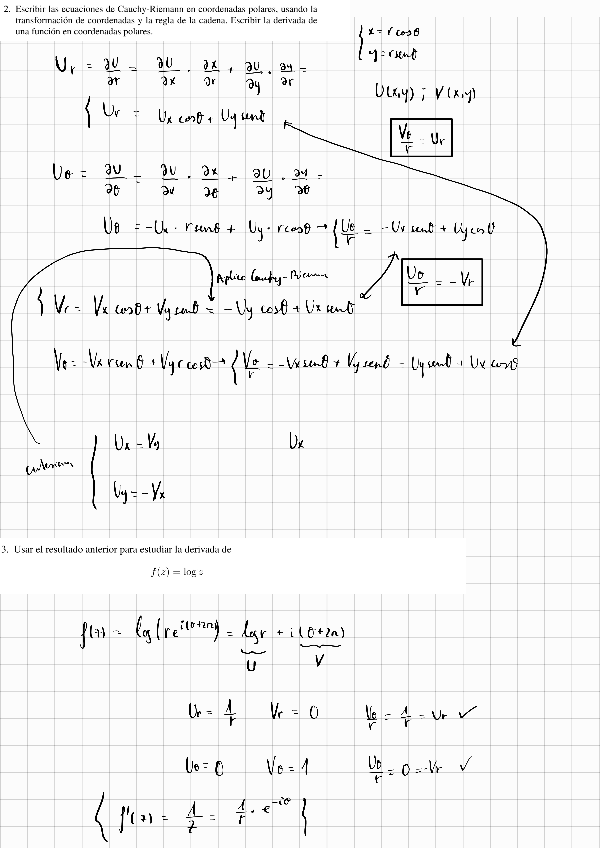 2. Escribir las ecuaciones de Cauchy-Riemann en coordenadas polares, usando la
transformación de coordenadas y la regla de la cadena. Escribir la derivada de
una función en coordenadas polares.
{ x = r cosθ
y = r senθ
U(x,y) ; V(x,y)
Vθ/r = Ur
Ur = ∂U/∂r = ∂U/∂x · ∂x/∂r + ∂U/∂y · ∂y/∂r =
{ Ur = Ux cosθ + Uy senθ
Uθ = ∂U/∂θ = ∂U/∂x · ∂x/∂θ + ∂U/∂y · ∂y/∂θ =
Uθ = -Ux · r senθ + Uy · r cosθ → { Uθ/r = -Ux senθ + Uy cosθ
Aplico Cauchy-Riemann
Uθ/r = -Vr
{ Vr = Vx cosθ + Vy senθ = -Uy cosθ + Ux senθ
Vθ = -Vx r senθ + Vy r cosθ → { Vθ/r = -Vx senθ + Vy senθ = Uy senθ + Ux cosθ
{ Ux = Vy
Ux
Uy = -Vx
3. Usar el resultado anterior para estudiar la derivada de
f(z) = log z
f(z) = log(r e^i(θ+2π)) = log r + i(θ+2π)
U V
Ur = 1/r Vr = 0 Vθ/r = 1/r = Ur ✓
Uθ = 0 Vθ = 1 Uθ/r = 0 = -Vr ✓
{ f'(z) = 1/z = 1/r · e^-iθ }